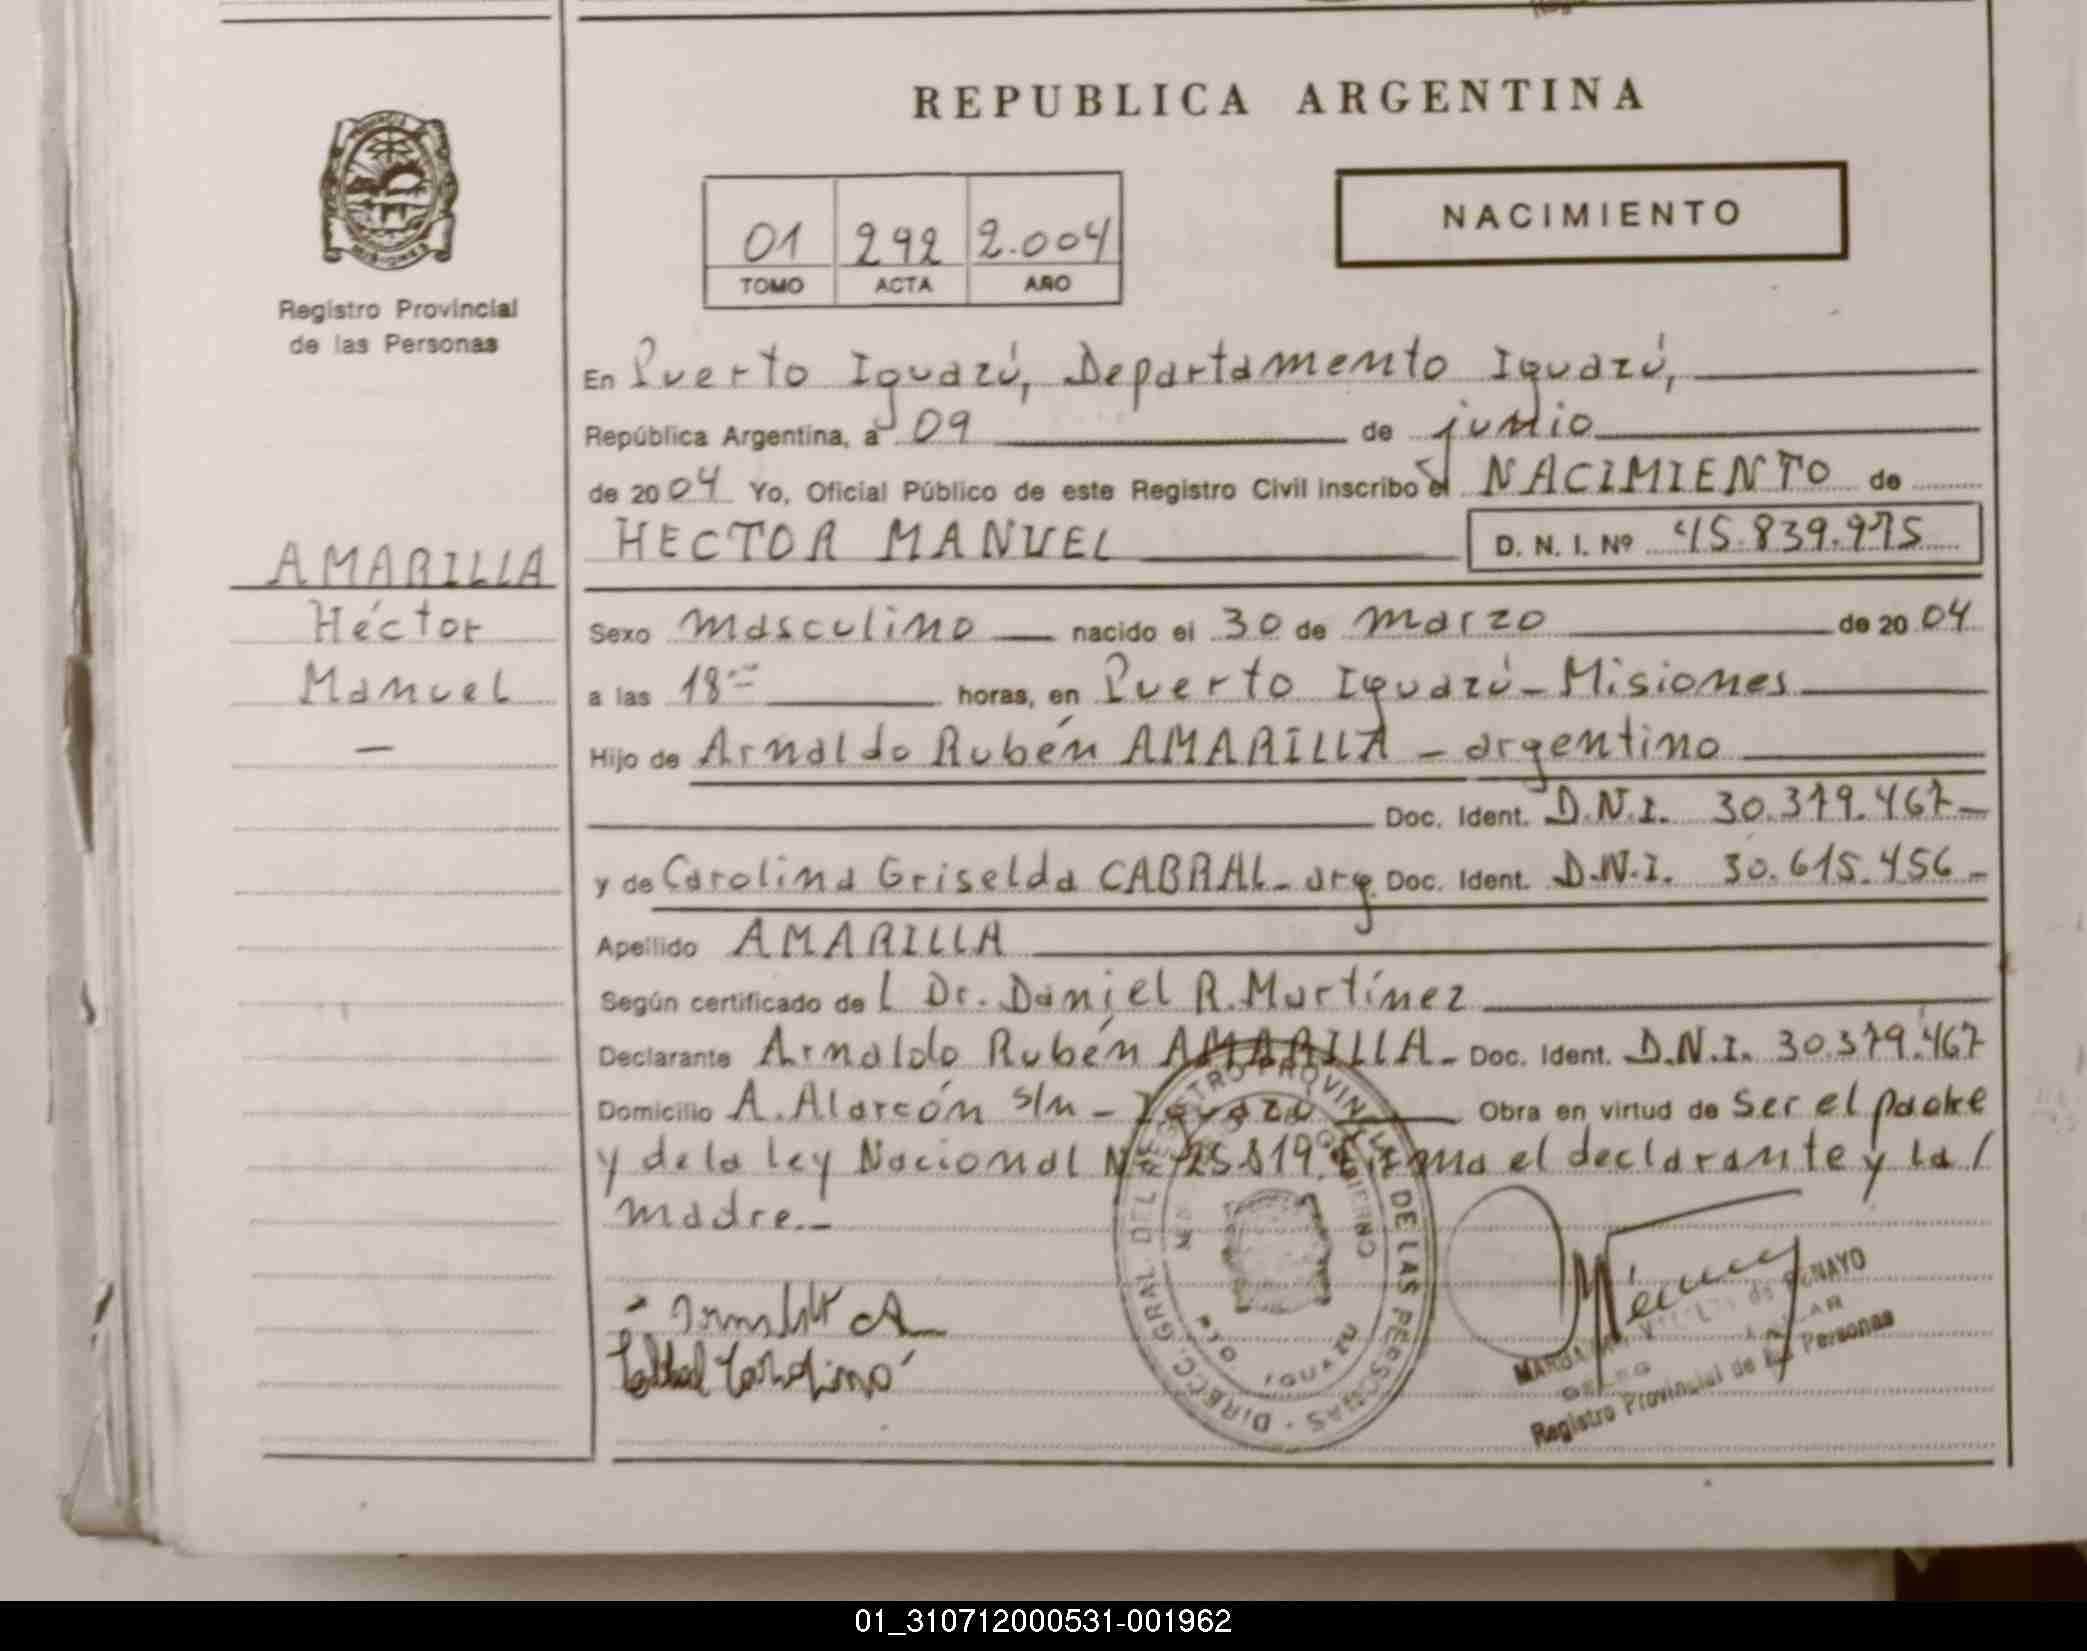 REPUBLICA ARGENTINA
NACIMIENTO
01 292 2.004
TOMO ACTA AÑO
MISIONES
Registro Provincial
de las Personas
En Puerto Iguazú, Departamento Iguazú,
República Argentina, a 09 de junio
de 2004 Yo, Oficial Público de este Registro Civil inscribo el NACIMIENTO de
HECTOR MANUEL D. N. I. Nº 45.839.975
AMARILLA
Héctor
Manuel
—
Sexo masculino nacido el 30 de marzo de 2004
a las 18 horas, en Puerto Iguazú - Misiones
Hijo de Arnaldo Rubén AMARILLA - argentino
Doc. Ident. D.N.I. 30.379.467-
y de Carolina Griselda CABRAL - arg. Doc. Ident. D.N.I. 30.615.456-
Apellido AMARILLA
Según certificado del Dr. Daniel R. Martínez
Declarante Arnaldo Rubén AMARILLA - Doc. Ident. D.N.I. 30.379.467
Domicilio A. Alarcón s/n - Iguazú Obra en virtud de ser el padre
y de la ley Nacional Nº 25.819. Firma el declarante y la /
madre.-
DIRECC. GRAL. DEL REGISTRO PROVINCIAL DE LAS PERSONAS
PTO. IGUAZU
Cabral Carolina
Registro Provincial de las Personas
01_310712000531-001962